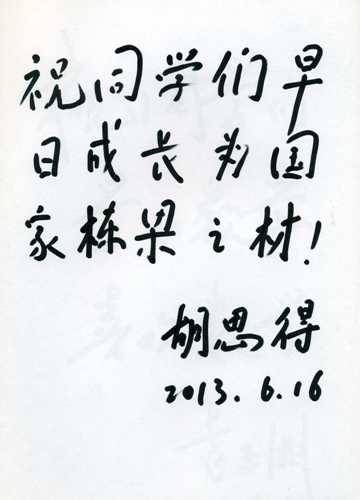 祝同学们早
日成长为国
家栋梁之材!
胡思得
2013.6.16